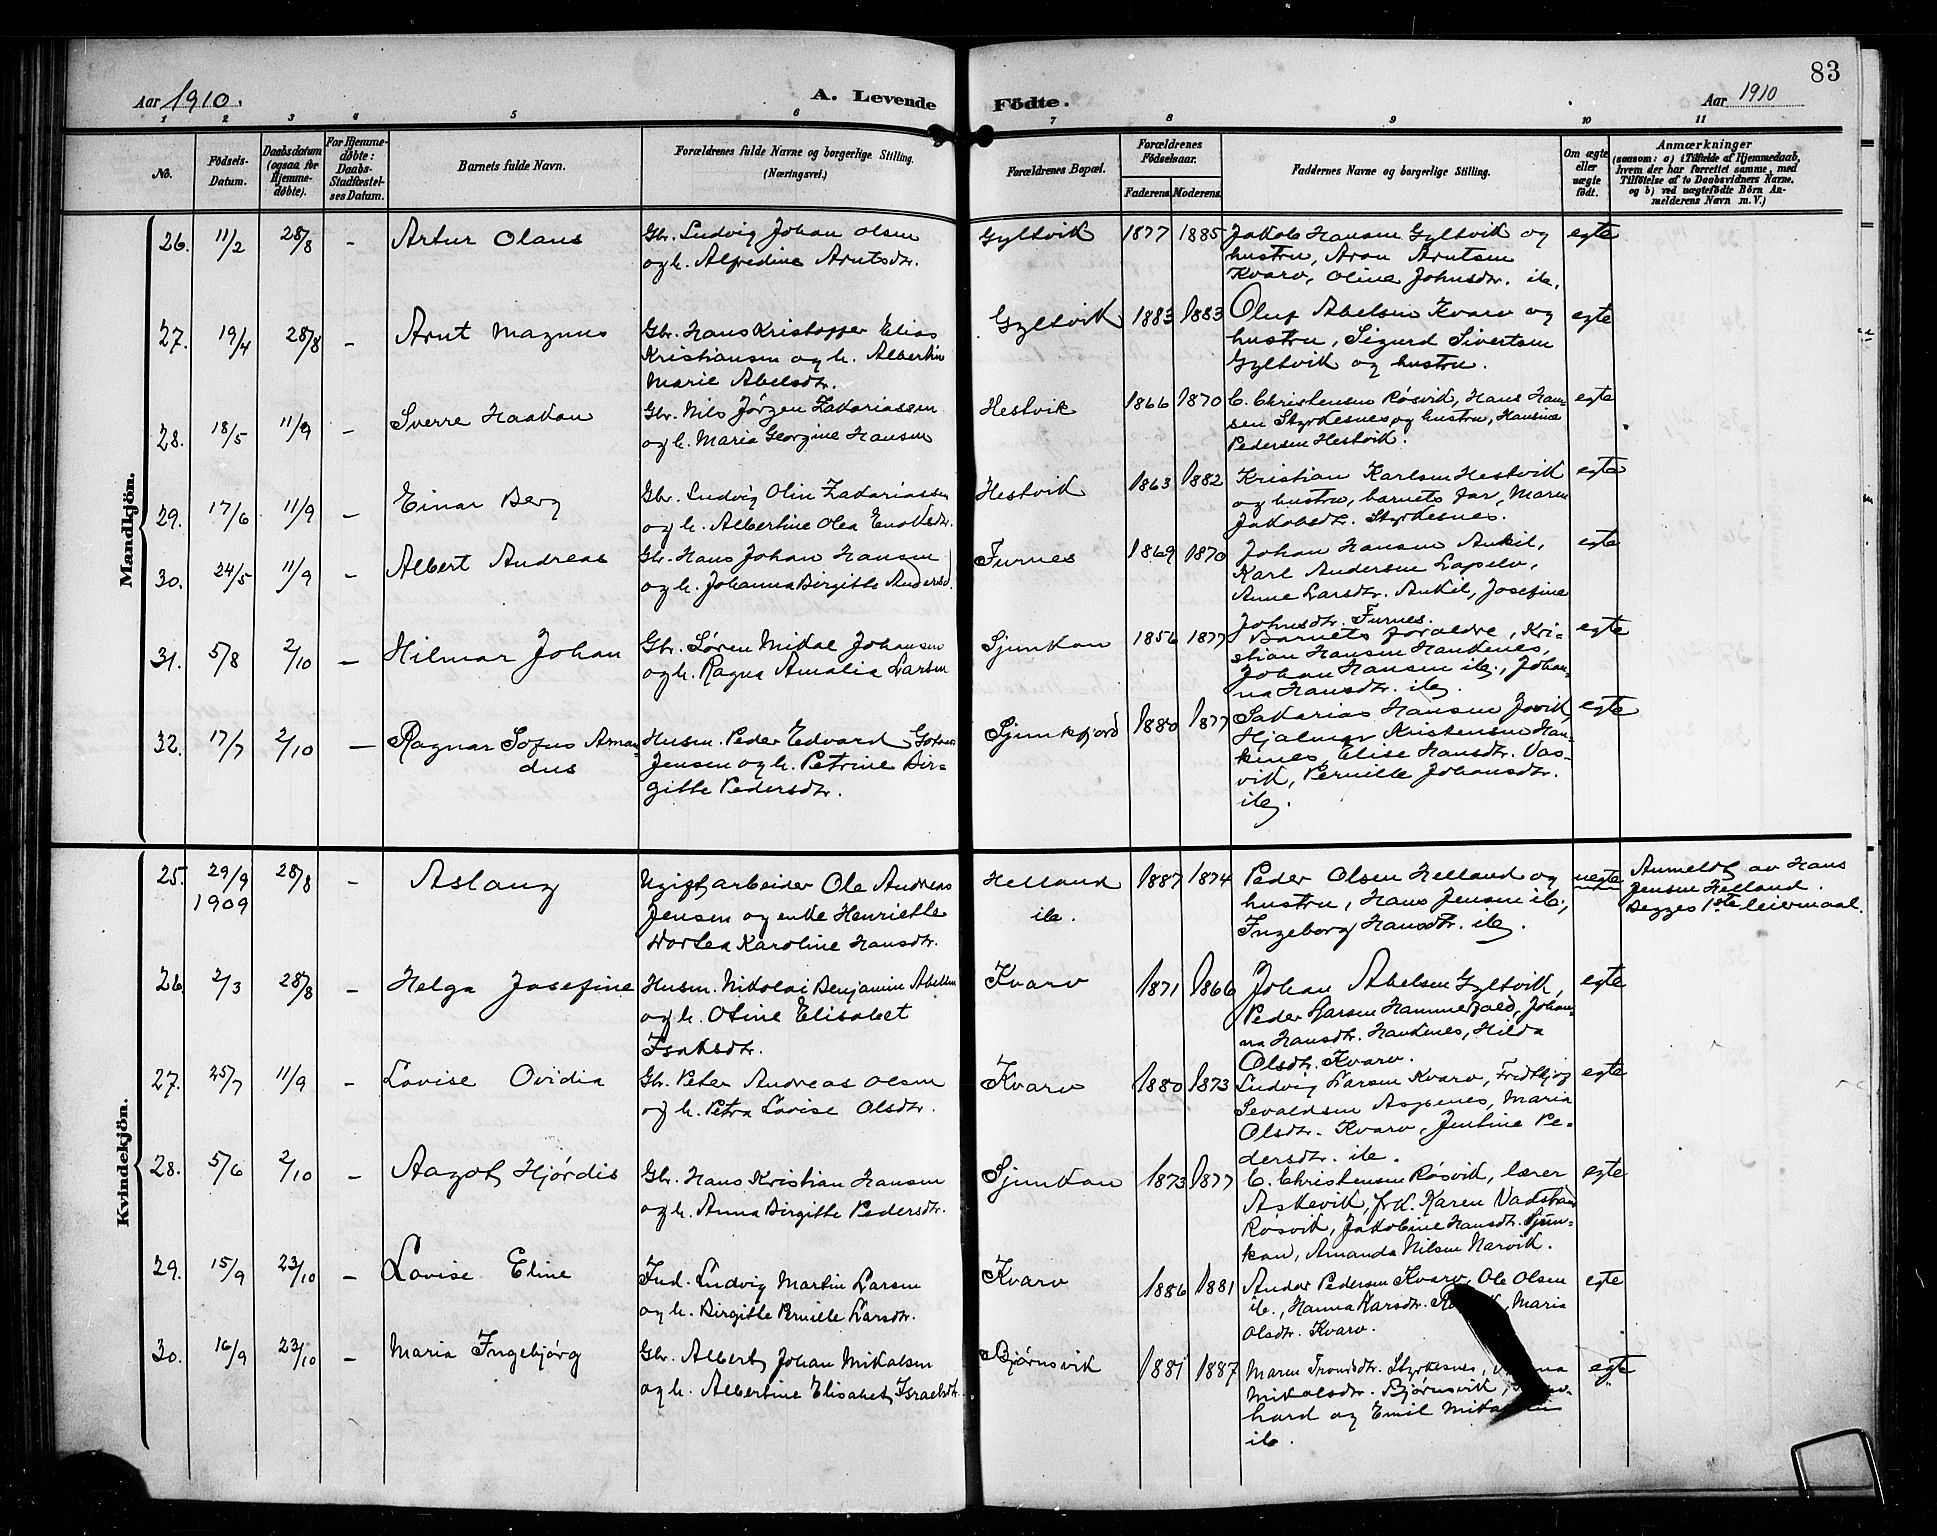 83
Aar 1910.
A. Levende
Födte.
Aar 1910
1 2 3 4 5 6 7 8 9 10 11
No.
Födsels-Datum.
Daabsdatum (ogsaa for Hjemme-døbte).
For Hjemme-døbte: Daabs-Stadfæstel-ses Datum.
Barnets fulde Navn.
Forældrenes fulde Navne og borgerlige Stilling.
(Næringsvei.)
Forældrenes Bopæl.
Forældrenes Födselsaar.
Faderens. Moderens.
Faddernes Navne og borgerlige Stilling.
Om ægte eller uægte födt.
Anmærkninger
(saasom: a) i Tilfælde af Hjemmedaab,
hvem der har forrettet samme, med
Tilföielse af to Daabsvidners Navne,
og b) ved uægtefödte Börn An-
melderens Navn m. V.)
Mandkjön.
26. 11/2 28/8 - Artur Olaus
Gbr. Ludvig Johan Olsen
og h. Alfredine Arntsdtr.
Gyltvik 1877 1885
Jakob Hansen Gyltvik og
hustru, Aron Arntsen
Kvarv, Oline Johnsdtr. ib.
egte
27. 19/4 28/8 - Arnt Magnus
Gbr. Hans Kristoffer Elias
Kristiansen og h. Albertine
Marie Abelsdtr.
Gyltvik 1883 1883
Oluf Abelsen Kvarv og
hustru, Sigurd Sivertsen
Gyltvik og hustru.
egte
28. 18/5 11/9 - Sverre Haakon
Gbr. Nils Jørgen Zakariassen
og h. Maria Georgine Hansen
Hestvik 1866 1870
C. Christensen Røsvik, Hans Han-
sen Styrkesnes og hustru, Hansine
Pedersen Hestvik.
egte
29. 17/6 11/9 - Einar Berg
Gbr. Ludvig Olin Zakariassen
og h. Albertine Olea Enoksdtr.
Hestvik 1863 1882
Kristian Karlsen Hestvik
og hustru, barnets far, Maren
Jakobsdtr. Styrkesnes.
egte
30. 24/5 11/9 - Albert Andreas
Gbr. Hans Johan Hansen
og h. Johanna Birgitte Andersd.
Furnes 1869 1870
Johan Hansen Ankil,
Karl Andersen Lapelv,
Anne Larsdtr. Ankil, Josefine
Johnsdtr. Furnes.
egte
31. 5/8 2/10 - Hilmar Johan
Gbr. Søren Mikal Johansen
og h. Ragna Amalia Larsen
Sjunkan 1856 1877
Barnets forældre, Kri-
stian Hansen Hankenes,
Johan Hansen ib., Johan-
na Hansdtr. ib.
egte
32. 17/7 2/10 - Ragnar Sofus Aman-
dus
Husm. Peder Edvard
Jensen og h. Petrine Bir-
gitte Pedersdtr.
Sjunkfjord 1880 1877
Sakarias Hansen Jøvik,
Hjalmar Kristensen Han-
kenes, Elise Hansdtr. Vas-
vik, Pernille Johansdtr.
ib.
egte
Kvindekjön.
25. 29/9 1909 28/8 - Aslaug
Ugift arbeider Ole Andreas
Jensen og enke Henriette
Dortea Karoline Hansdtr.
Helland
ib.
1887 1874
Peder Olsen Helland og
hustru, Hans Jensen ib.,
Ingeborg Hansdtr. ib.
uegte
Anmeldt av Hans
Jensen Helland.
Begges 1ste leiermaal.
26. 2/3 28/8 - Helga Josefine
Husm. Nikolai Benjamin Abelsen
og h. Otine Elisabet
Isaksdtr.
Kvarv 1871 1866
Johan Abelsen Gyltvik,
Peder Larsen Hammerfald, Johan-
na Hansdtr. Hankenes, Hilda
Olsdtr. Kvarv.
egte
27. 25/7 11/9 - Lovise Ovidia
Gb. Peter Andreas Olsen
og h. Petra Lovise Olsdtr.
Kvarv 1880 1873
Ludvig Larsen Kvarv, Fredtbjog
Sevaldsen Aspenes, Maria
Olsdtr. Kvarv, Jentine Pe-
dersdtr. ib.
egte
28. 5/6 2/10 - Aagot Hjørdis
Gbr. Hans Kristian Hansen
og h. Anna Birgitte Pedersdtr.
Sjunkan 1873 1877
C. Christensen Røsvik, lærer
Askevik, frk. Karen
Røsvik, Jakobine Hansdtr. Sjun-
kan, Amanda Nilsen Narvik.
egte
29. 15/9 23/10 - Lovise Eline
Ind. Ludvig Martin Larsen
og h. Birgitte Pernille Larsdtr.
Kvarv 1886 1881
Andor Pedersen Kvarv, Ole Olsen
ib., Hanna Larsdtr. Maria
Olsdtr. Kvarv.
egte
30. 16/9 23/10 - Maria Ingebjørg
Gbr. Albert Johan Mikalsen
og h. Albertine Elisabet Israelsdtr.
Bjørnsvik 1881 1887
Maren Trondsdtr. Styrkesnes,
Mikalsdtr. Bjørnsvik,
hard og Emil
ib.
egte